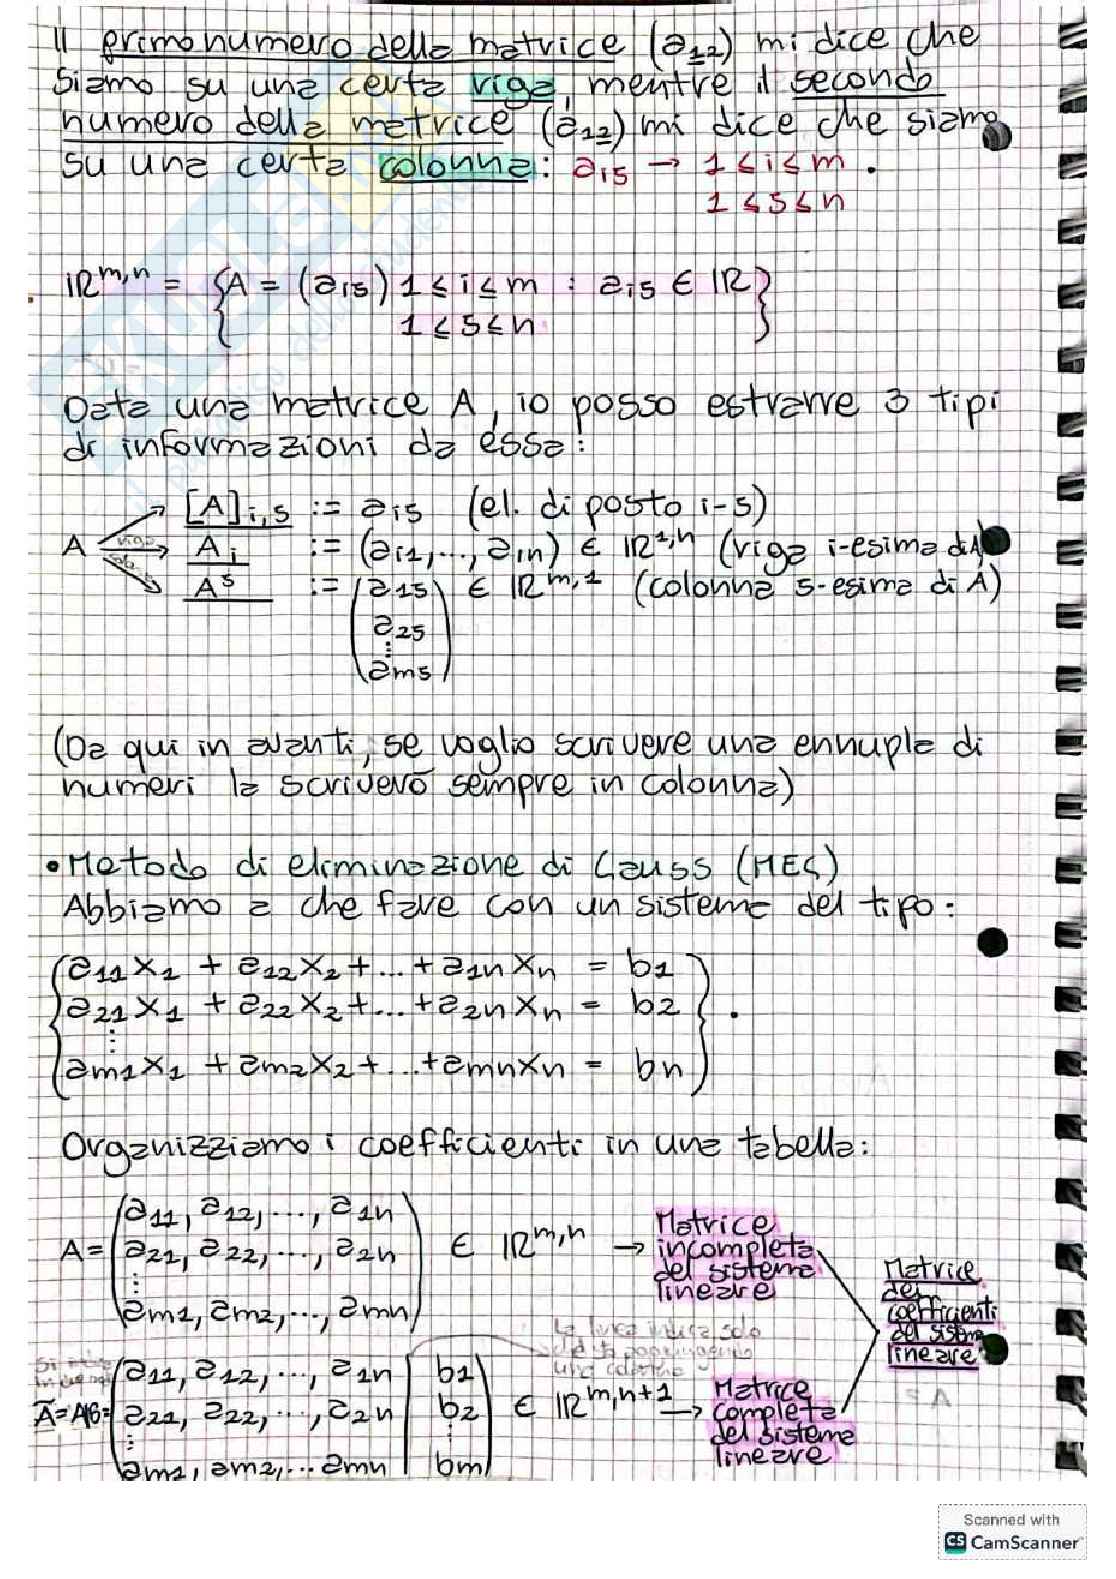 Il primo numero della matrice (a12) mi dice che
siamo su una certa riga, mentre il secondo
numero della matrice (a12) mi dice che siamo
su una certa colonna: aij → 1 ≤ i ≤ m .
1 ≤ j ≤ n
ℝ^m,n = {A = (aij) 1 ≤ i ≤ m : aij ∈ ℝ}
1 ≤ j ≤ n
Data una matrice A, io posso estrarre 3 tipi
di informazioni da essa:
[A]i,j := aij (el. di posto i-j)
A riga Ai := (ai1,..., ain) ∈ ℝ^1,n (riga i-esima di A)
A^j := (a1j) ∈ ℝ^m,1 (colonna j-esima di A)
a2j
⋮
amj
(Da qui in avanti, se voglio scrivere una ennupla di
numeri la scriverò sempre in colonna)
• Metodo di eliminazione di Gauss (MEG)
Abbiamo a che fare con un sistema del tipo:
{a11x1 + a12x2 + ... + a1nxn = b1
a21x1 + a22x2 + ... + a2nxn = b2 } .
⋮
am1x1 + am2x2 + ... + amnxn = bn
Organizziamo i coefficienti in una tabella:
(a11, a12, ..., a1n)
A = a21, a22, ..., a2n ∈ ℝ^m,n → Matrice incompleta del sistema lineare
⋮
am1, am2, ..., amn
Matrice dei coefficienti del sistema lineare
La linea indica solo
una colonna
(a11, a12, ..., a1n | b1)
Ã = A|B = a21, a22, ..., a2n | b2 ∈ ℝ^m,n+1 → Matrice completa del sistema lineare
⋮ ⋮
am1, am2, ... amn | bm
Scanned with
CS CamScanner